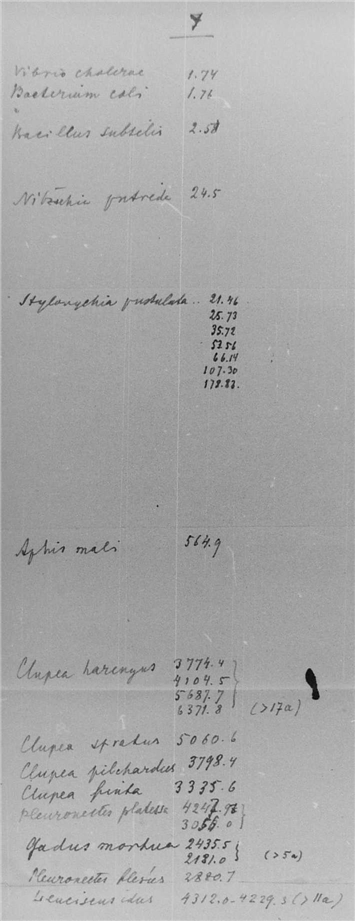 7
Vibrio cholerae 1.74
Bacterium coli 1.76
Bacillus subtilis 2.58
Nitzschia putrida 24.5
Stylonychia pustulata .. 21.46
25.73
35.72
52.56
66.14
107.30
178.83.
Aphis mali 564.9
Clupea harengus 3774.4
4104.5
5687.7
6371.8 (>17a)
Clupea sprattus 5060.6
Clupea pilchardus 3798.4
Clupea finta 3335.6
Pleuronectes platessa 4247.96
3055.0
Gadus morhua 2435.5
2181.0 (>5a)
Pleuronectes flesus 2880.7
Leuciscus idus 4312.0-4229.3 (>11a)